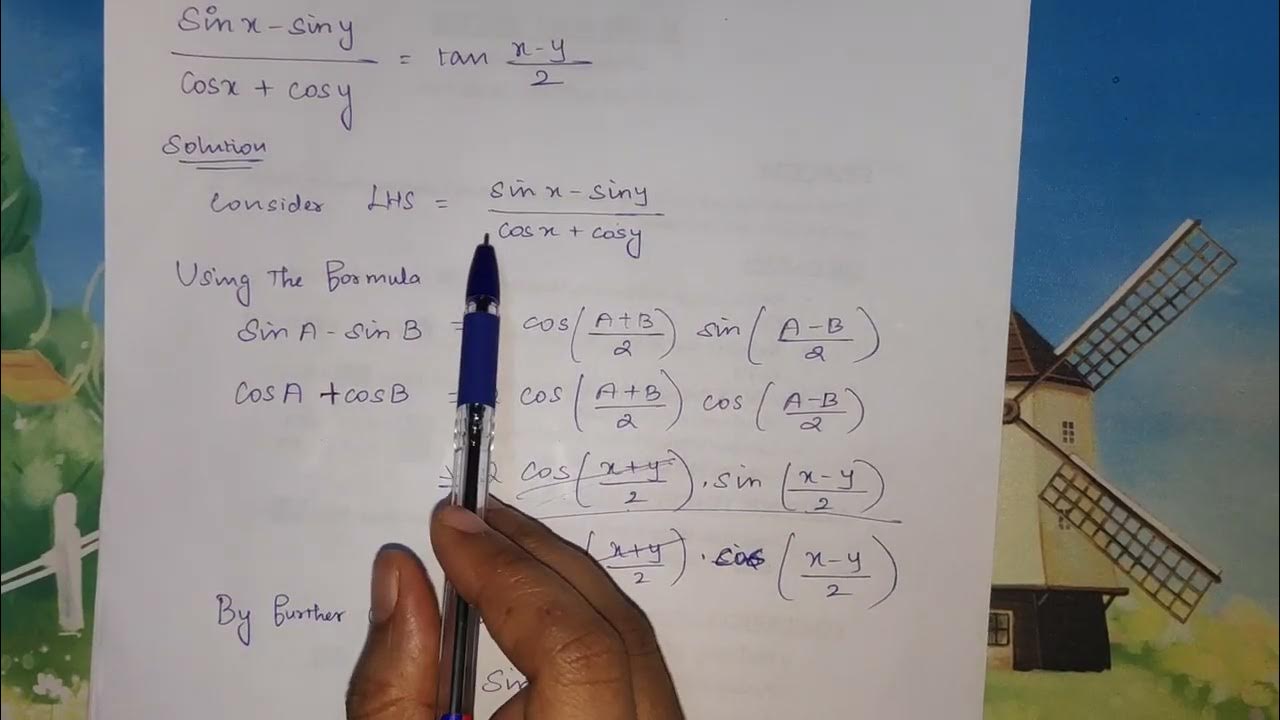 Sin x - sin y / Cos x + cos y = tan x-y / 2
Solution
Consider LHS = sin x - sin y / cos x + cos y
Using The Formula
Sin A - Sin B = cos(A+B / 2) sin(A-B / 2)
Cos A + cos B = 2 cos(A+B / 2) cos(A-B / 2)
2 cos(x+y / 2) . sin(x-y / 2)
(x+y / 2) . cos(x-y / 2)
By Further
Sin